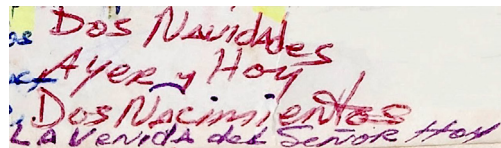 Dos Navidades
Ayer y Hoy
Dos Nacimientos
LA Venida del Señor Hoy